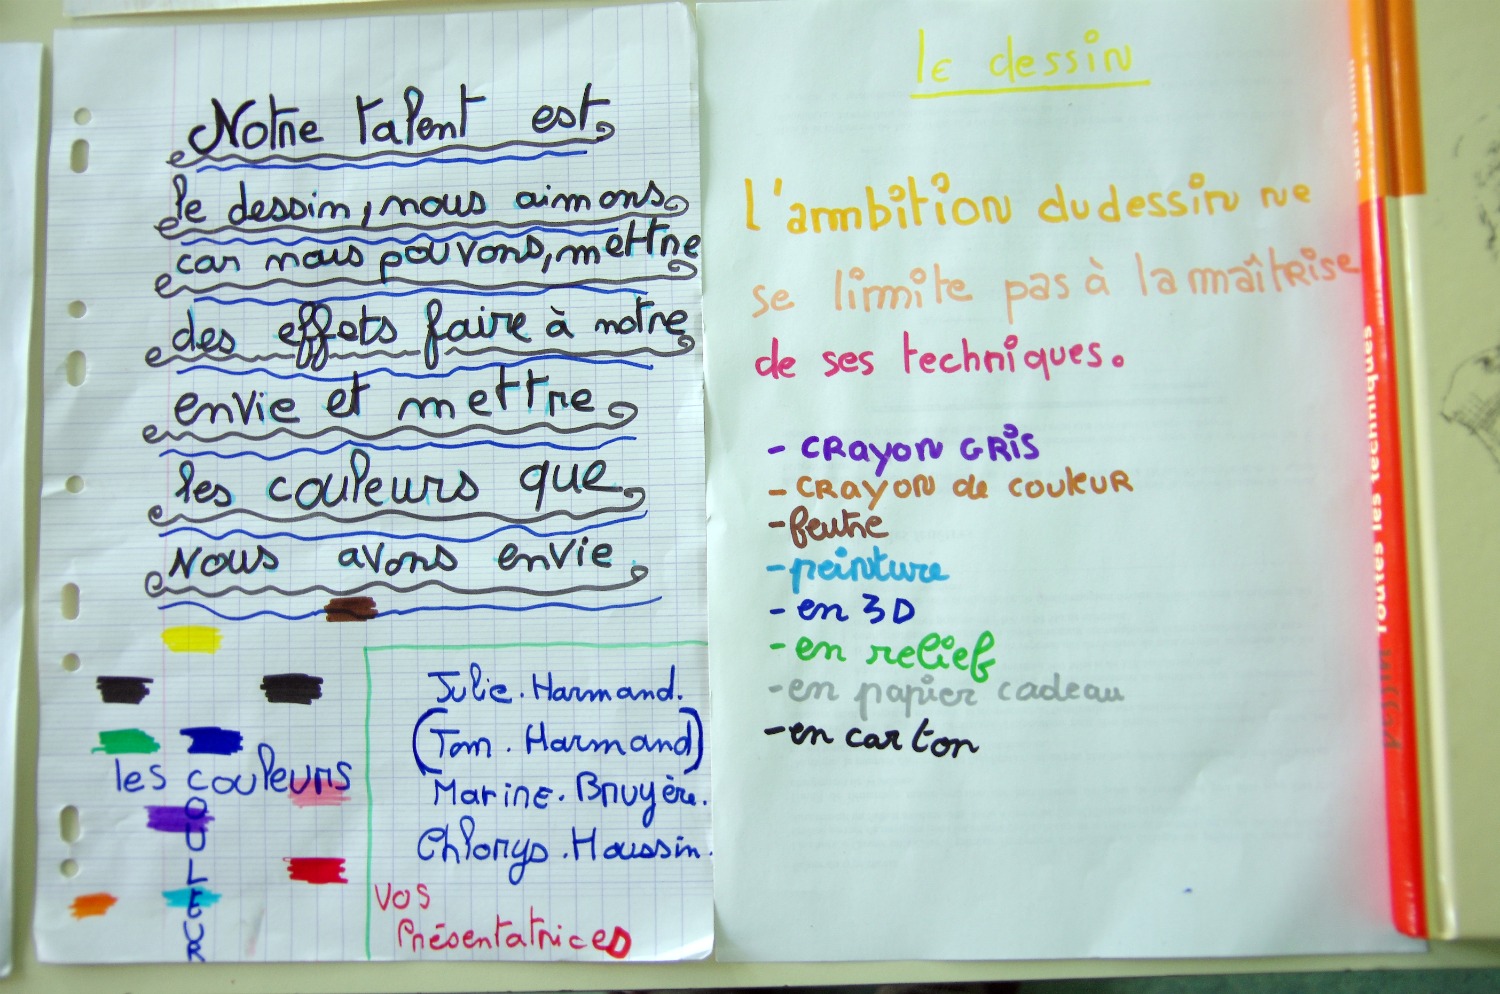 Notre talent est
le dessin, nous aimons
car nous pouvons, mettre
des effets faire à notre
envie et mettre
les couleurs que
nous avons envie
les couleurs
COULEUR
Julie. Harmand.
(Tom. Harmand)
Marine. Bruyère.
Chlorys. Houssin.
Vos
Présentatrices
le dessin
l'ambition du dessin ne
se limite pas à la maîtrise
de ses techniques.
- CRAYON GRIS
- CRAYON de couleur
- feutre
- peinture
- en 3D
- en relief
- en papier cadeau
- en carton
Toutes les techniques